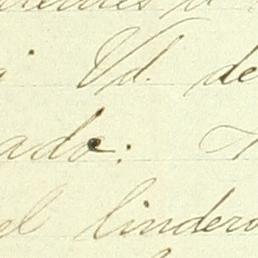 Vd. de
ado: T
el lindero